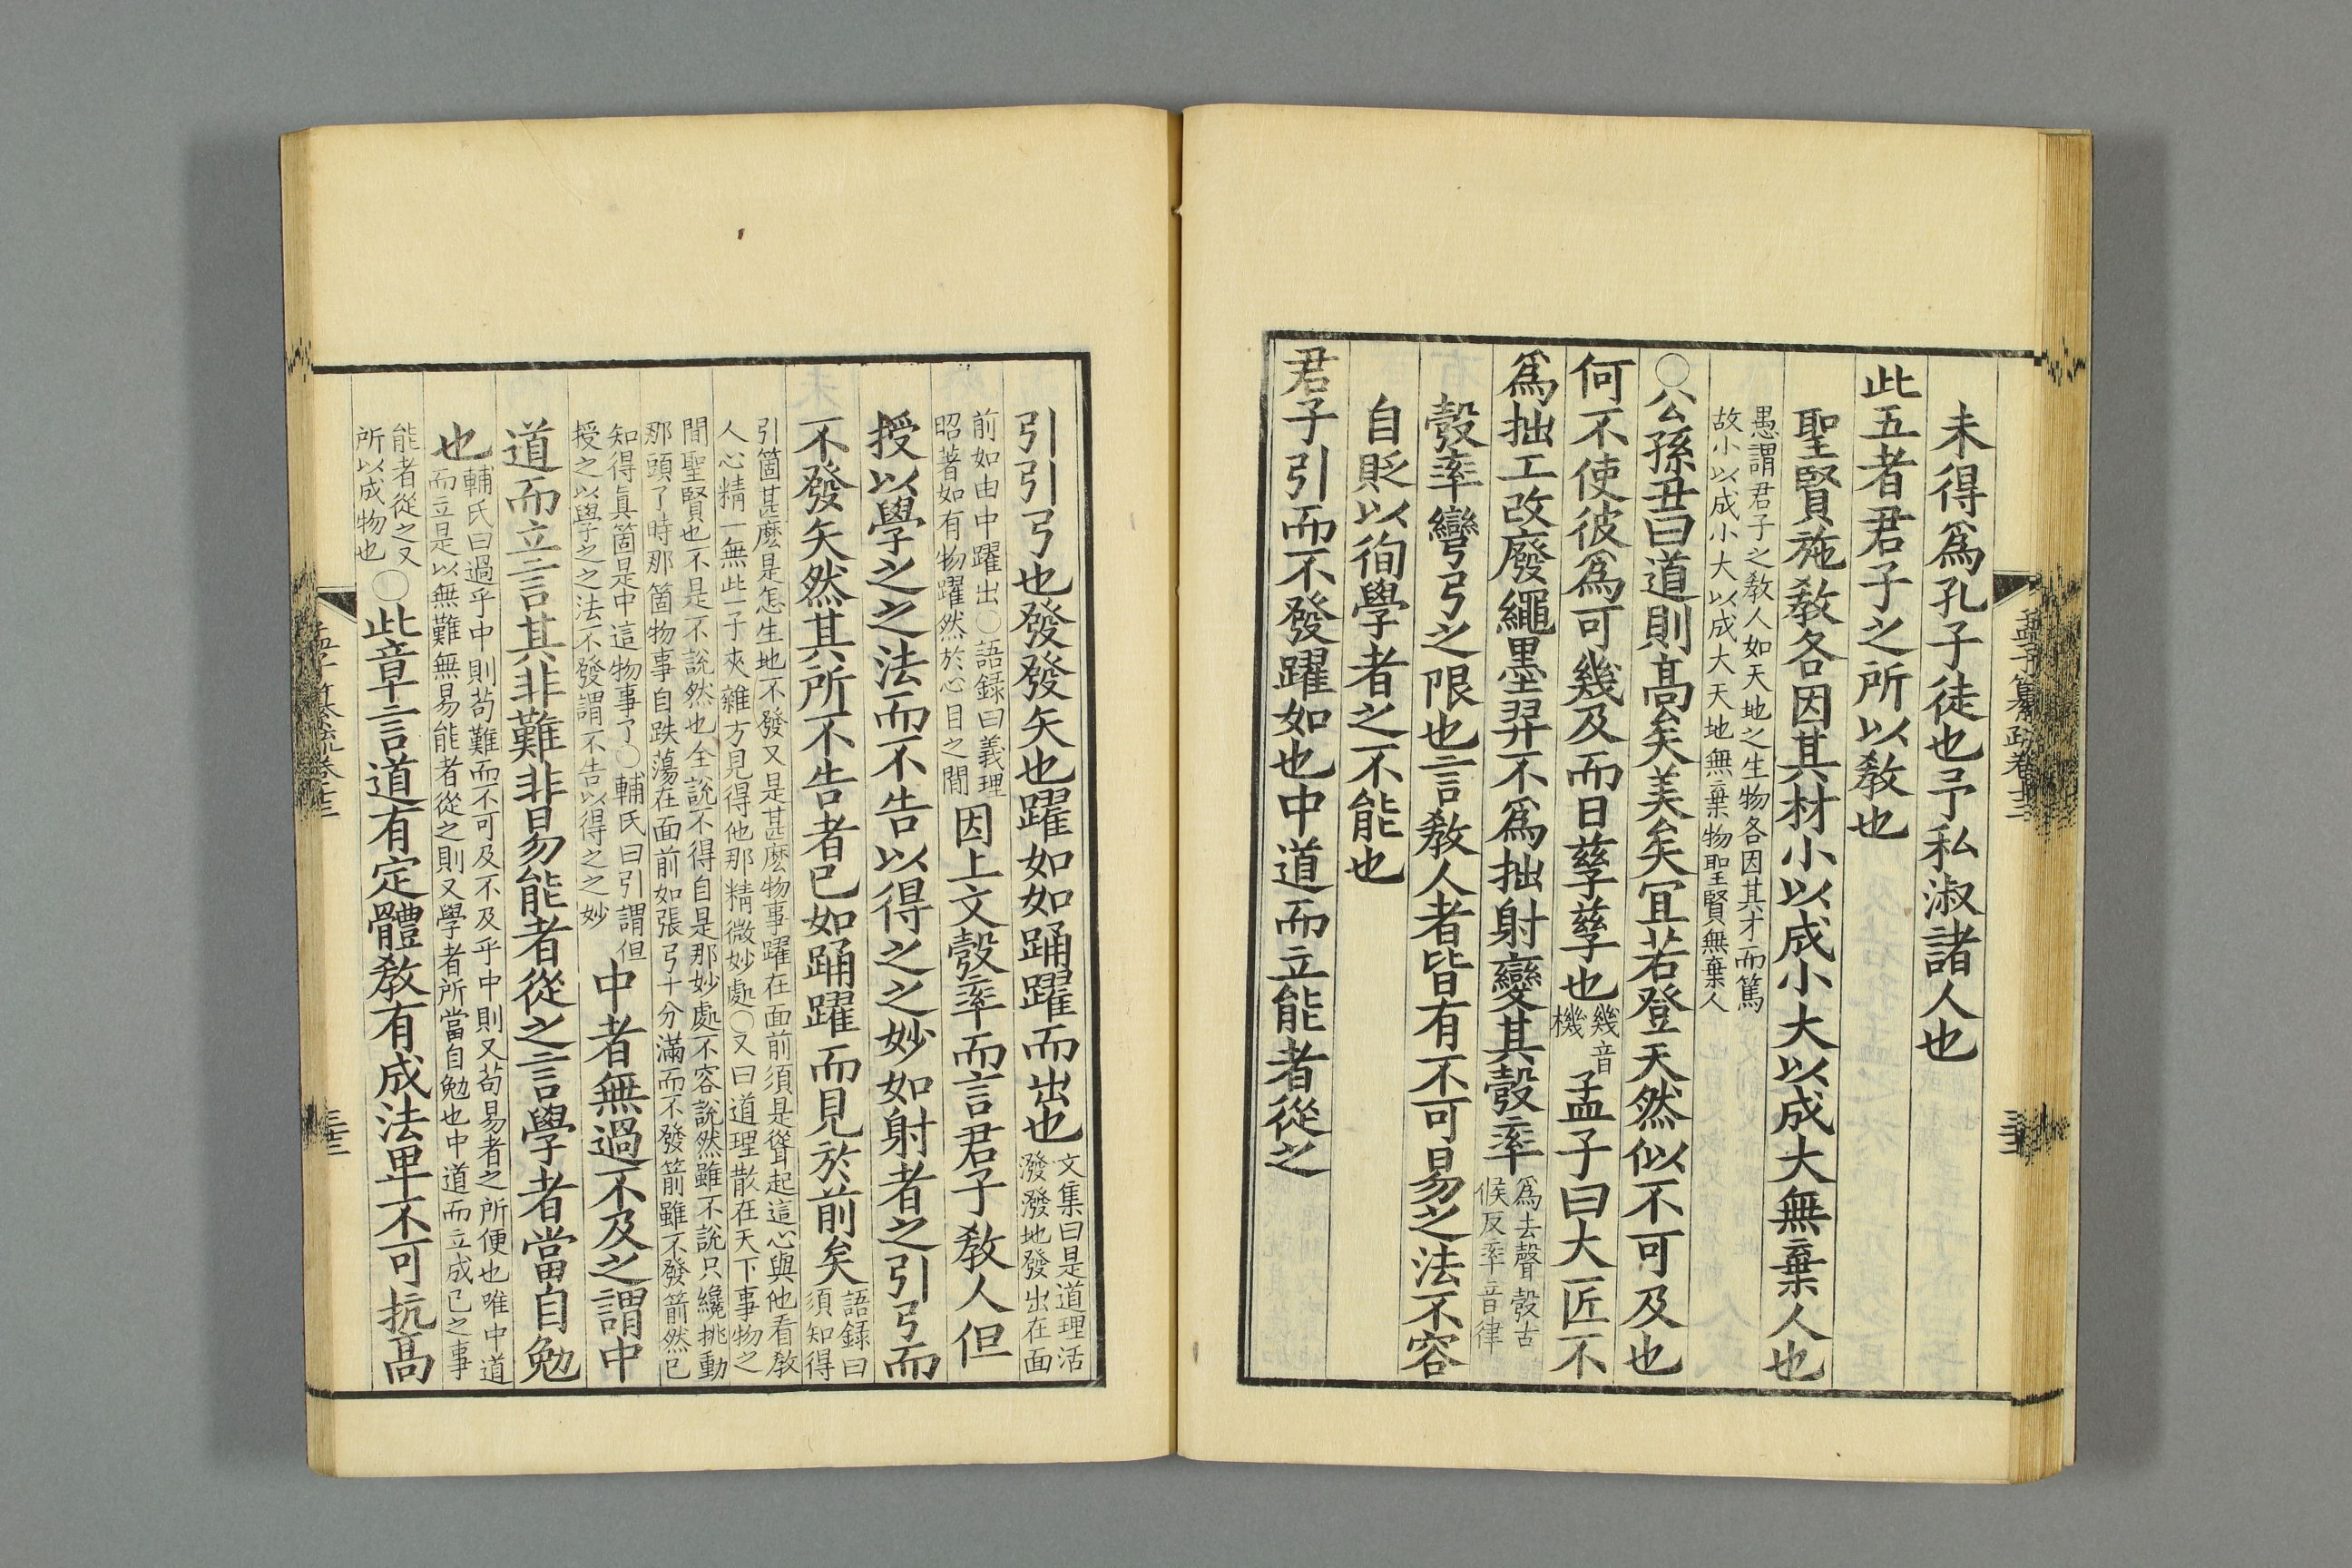 未得爲孔子徒也予私淑諸人也
此五者君子之所以敎也
聖賢施敎各因其材小以成小大以成大無棄人也
愚謂君子之敎人如天地之生物各因其才而篤
故小以成小大以成大天地無棄物聖賢無棄人
○公孫丑曰道則高矣美矣冝若登天然似不可及也
何不使彼爲可幾及而日孳孳也
幾音
機
孟子曰大匠不
爲拙工改廢繩墨羿不爲拙射變其彀率
爲去聲彀古
候反率音律
彀率彎弓之限也言敎人者皆有不可易之法不容
自貶以徇學者之不能也
君子引而不發躍如也中道而立能者從之
孟子纂疏卷十三
引引弓也發發矢也躍如如踊躍而出也
文集曰是道理活
潑潑地發出在面
前如由中躍出○語録曰義理
昭著如有物躍然於心目之間
因上文彀率而言君子敎人但
授以學之之法而不告以得之之妙如射者之引弓而
不發矢然其所不告者已如踊躍而見於前矣
語録曰
須知得
引箇甚麽是怎生地不發又是甚麽物事躍在面前須是聳起這心與他看敎
人心精一無些子夾雜方見得他那精微妙處○又曰道理散在天下事物之
間聖賢也不是不說然也全說不得自是那妙處不容說然雖不說只纔挑動
那頭了時那箇物事自跌蕩在面前如張弓十分滿而不發箭雖不發箭然已
知得眞箇是中這物事了○輔氏曰引謂但
授之以學之之法不發謂不告以得之之妙
中者無過不及之謂中
道而立言其非難非易能者從之言學者當自勉
也
輔氏曰過乎中則苟難而不可及不及乎中則又苟易者之所便也唯中道
而立是以無難無易能者從之則又學者所當自勉也中道而立成己之事
能者從之又
所以成物也
○此章言道有定體敎有成法卑不可抗高
孟子纂疏卷十三